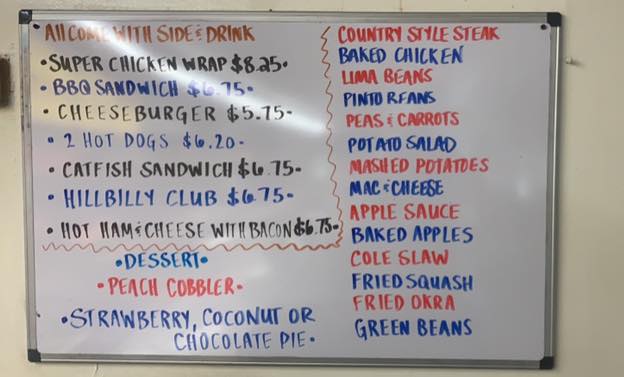 All COME WITH SIDE & DRINK
• SUPER CHICKEN WRAP $8.25•
• BBQ SANDWICH $6.75•
• CHEESEBURGER $5.75•
• 2 HOT DOGS $6.20•
• CATFISH SANDWICH $6.75•
• HILLBILLY CLUB $6.75•
• HOT HAM & CHEESE WITH BACON $6.75•
•DESSERT•
•PEACH COBBLER•
•STRAWBERRY, COCONUT OR
CHOCOLATE PIE•
COUNTRY STYLE STEAK
BAKED CHICKEN
LIMA BEANS
PINTO BEANS
PEAS & CARROTS
POTATO SALAD
MASHED POTATOES
MAC & CHEESE
APPLE SAUCE
BAKED APPLES
COLE SLAW
FRIED SQUASH
FRIED OKRA
GREEN BEANS